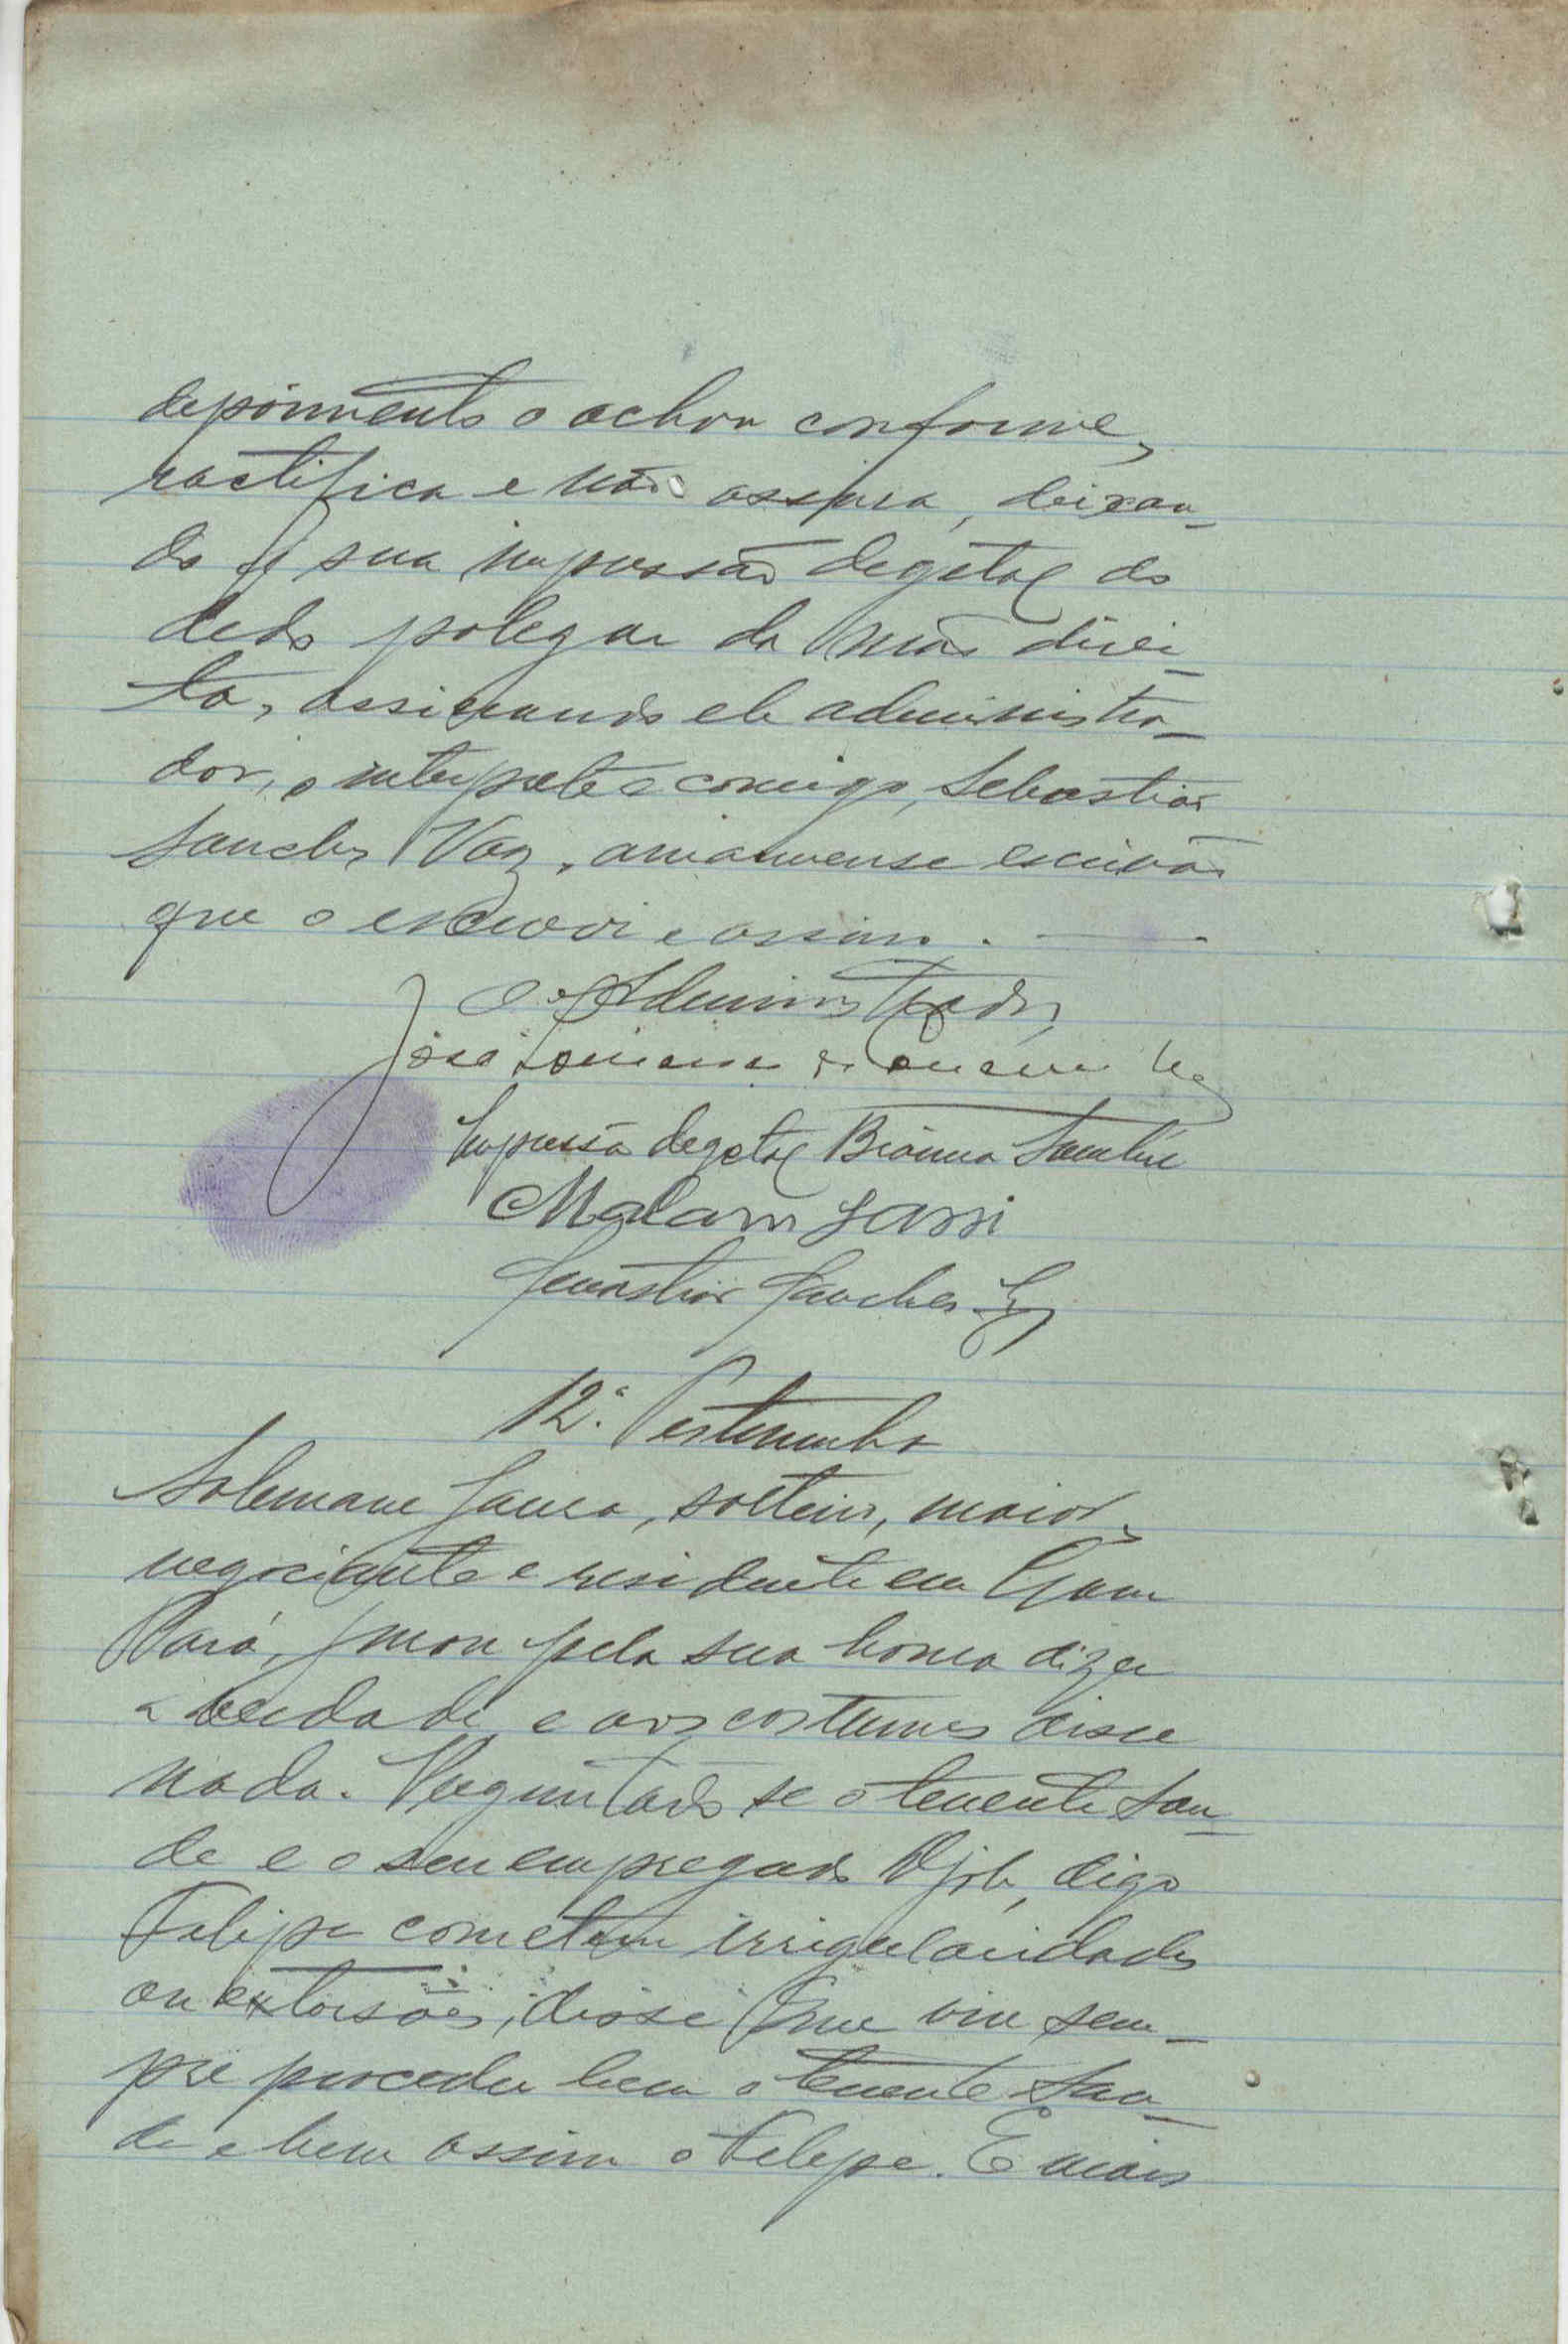 depoimento o achou conforme,
ractifica e não assina, deixan-
do a sua impressão degetal do
dedo polegar da mão direi-
ta, assinando ele administra-
dor, o interprete e comigo, Sebastião
Sanches Vaz, amanuense escrivão
que o escrevi e assino. —
O Administrador,
José
Impressão degetal Bránma Sambú
Malam Sassi
Sebastião Sanches Vaz
12.ª Testemunha
Solemane Sanca, solteiro, maior,
negociante e residente em Gam
Pará, jurou pela sua honra dizer
a verdade e aos costumes disse
nada. Perguntado se o tenente San-
de e o seu empregado Djob, digo
Felipe cometem irregularidades
ou extorsões, disse: Que viu sem-
pre proceder bem o tenente San-
de e bem assim o Felipe. E mais